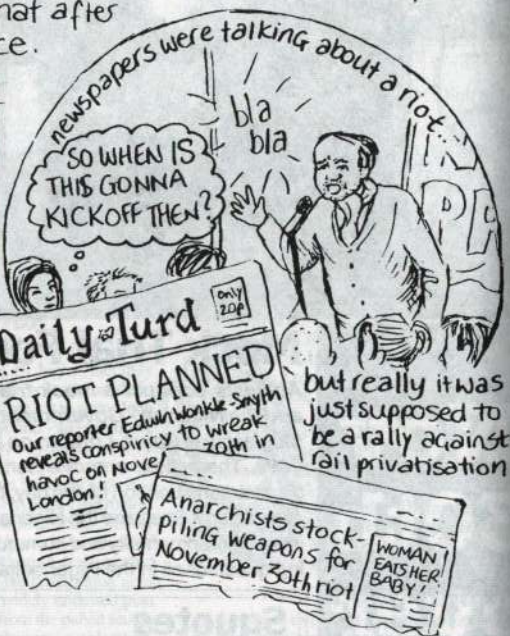 hat after
ce.
newspapers were talking about a riot...
bla
bla
SO WHEN IS
THIS GONNA
KICKOFF THEN?
PA
Daily Turd
only
20p
RIOT PLANNED
Our reporter Edwin Wonkle-Smyth
reveals conspiricy to wreak
havoc on Nove 30th in
London!
but really it was
just supposed to
be a rally against
rail privatisation
Anarchists stock-
piling weapons for
November 30th riot
WOMAN
EATS HER
BABY!